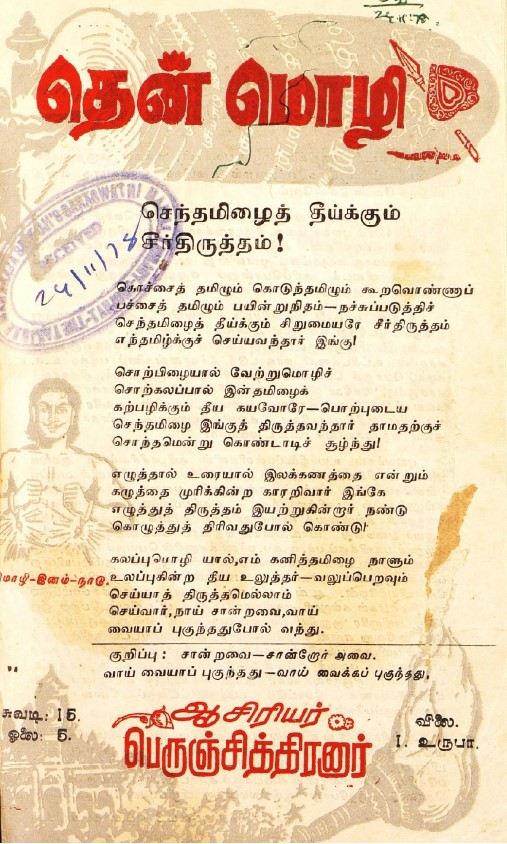 24.11.78.
தென் மொழி
RECEIVED
24/11/78
செந்தமிழைத் தீய்க்கும்
சீர்திருத்தம்!
கொச்சைத் தமிழும் கொடுந்தமிழும் கூறவொண்ணாப்
பச்சைத் தமிழும் பயின்றுநிதம்—நச்சுப்படுத்திச்
செந்தமிழைத் தீய்க்கும் சிறுமையரே சீர்திருத்தம்
எந்தமிழ்க்குச் செய்யவந்தார் இங்கு!
சொற்பிழையால் வேற்றுமொழிச்
சொற்கலப்பால் இன்தமிழைக்
கற்பழிக்கும் தீய கயவோரே—பொற்புடைய
செந்தமிழை இங்குத் திருத்தவந்தார் தாமதற்குச்
சொந்தமென்று கொண்டாடிச் சூழ்ந்து!
எழுத்தால் உரையால் இலக்கணத்தை என்றும்
கழுத்தை முரிக்கின்ற காரறிவார் இங்கே
எழுத்துத் திருத்தம் இயற்றுகின்றார் நண்டு
கொழுத்துத் திரிவதுபோல் கொண்டு!
கலப்புமொழி யால்,எம் கனித்தமிழை நாளும்
உலப்புகின்ற தீய உலுத்தர்—வலுப்பெறவும்
செய்யாத் திருத்தமெல்லாம்
செய்வார்,நாய் சான்றவை,வாய்
வையாப் புகுந்ததுபோல் வந்து.
மொழி-இனம்-நாடு.
குறிப்பு : சான்றவை—சான்றோர் அவை.
வாய் வையாப் புகுந்தது—வாய் வைக்கப் புகுந்தது.
சுவடி: 15.
ஓலை: 5.
ஆசிரியர்
பெருஞ்சித்திரனார்
விலை.
1. உருபா.